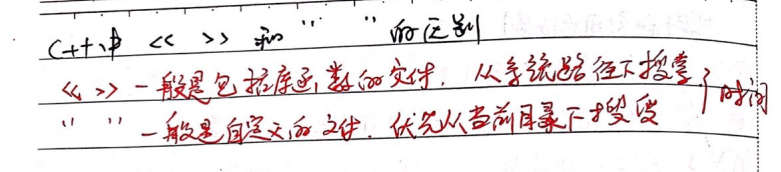 C++中 << >> 和 " " 的区别
<< >> 一般是包括库函数的文件. 从系统路径下搜索 } 时间
" " 一般是自定义的文件. 优先从当前目录下搜